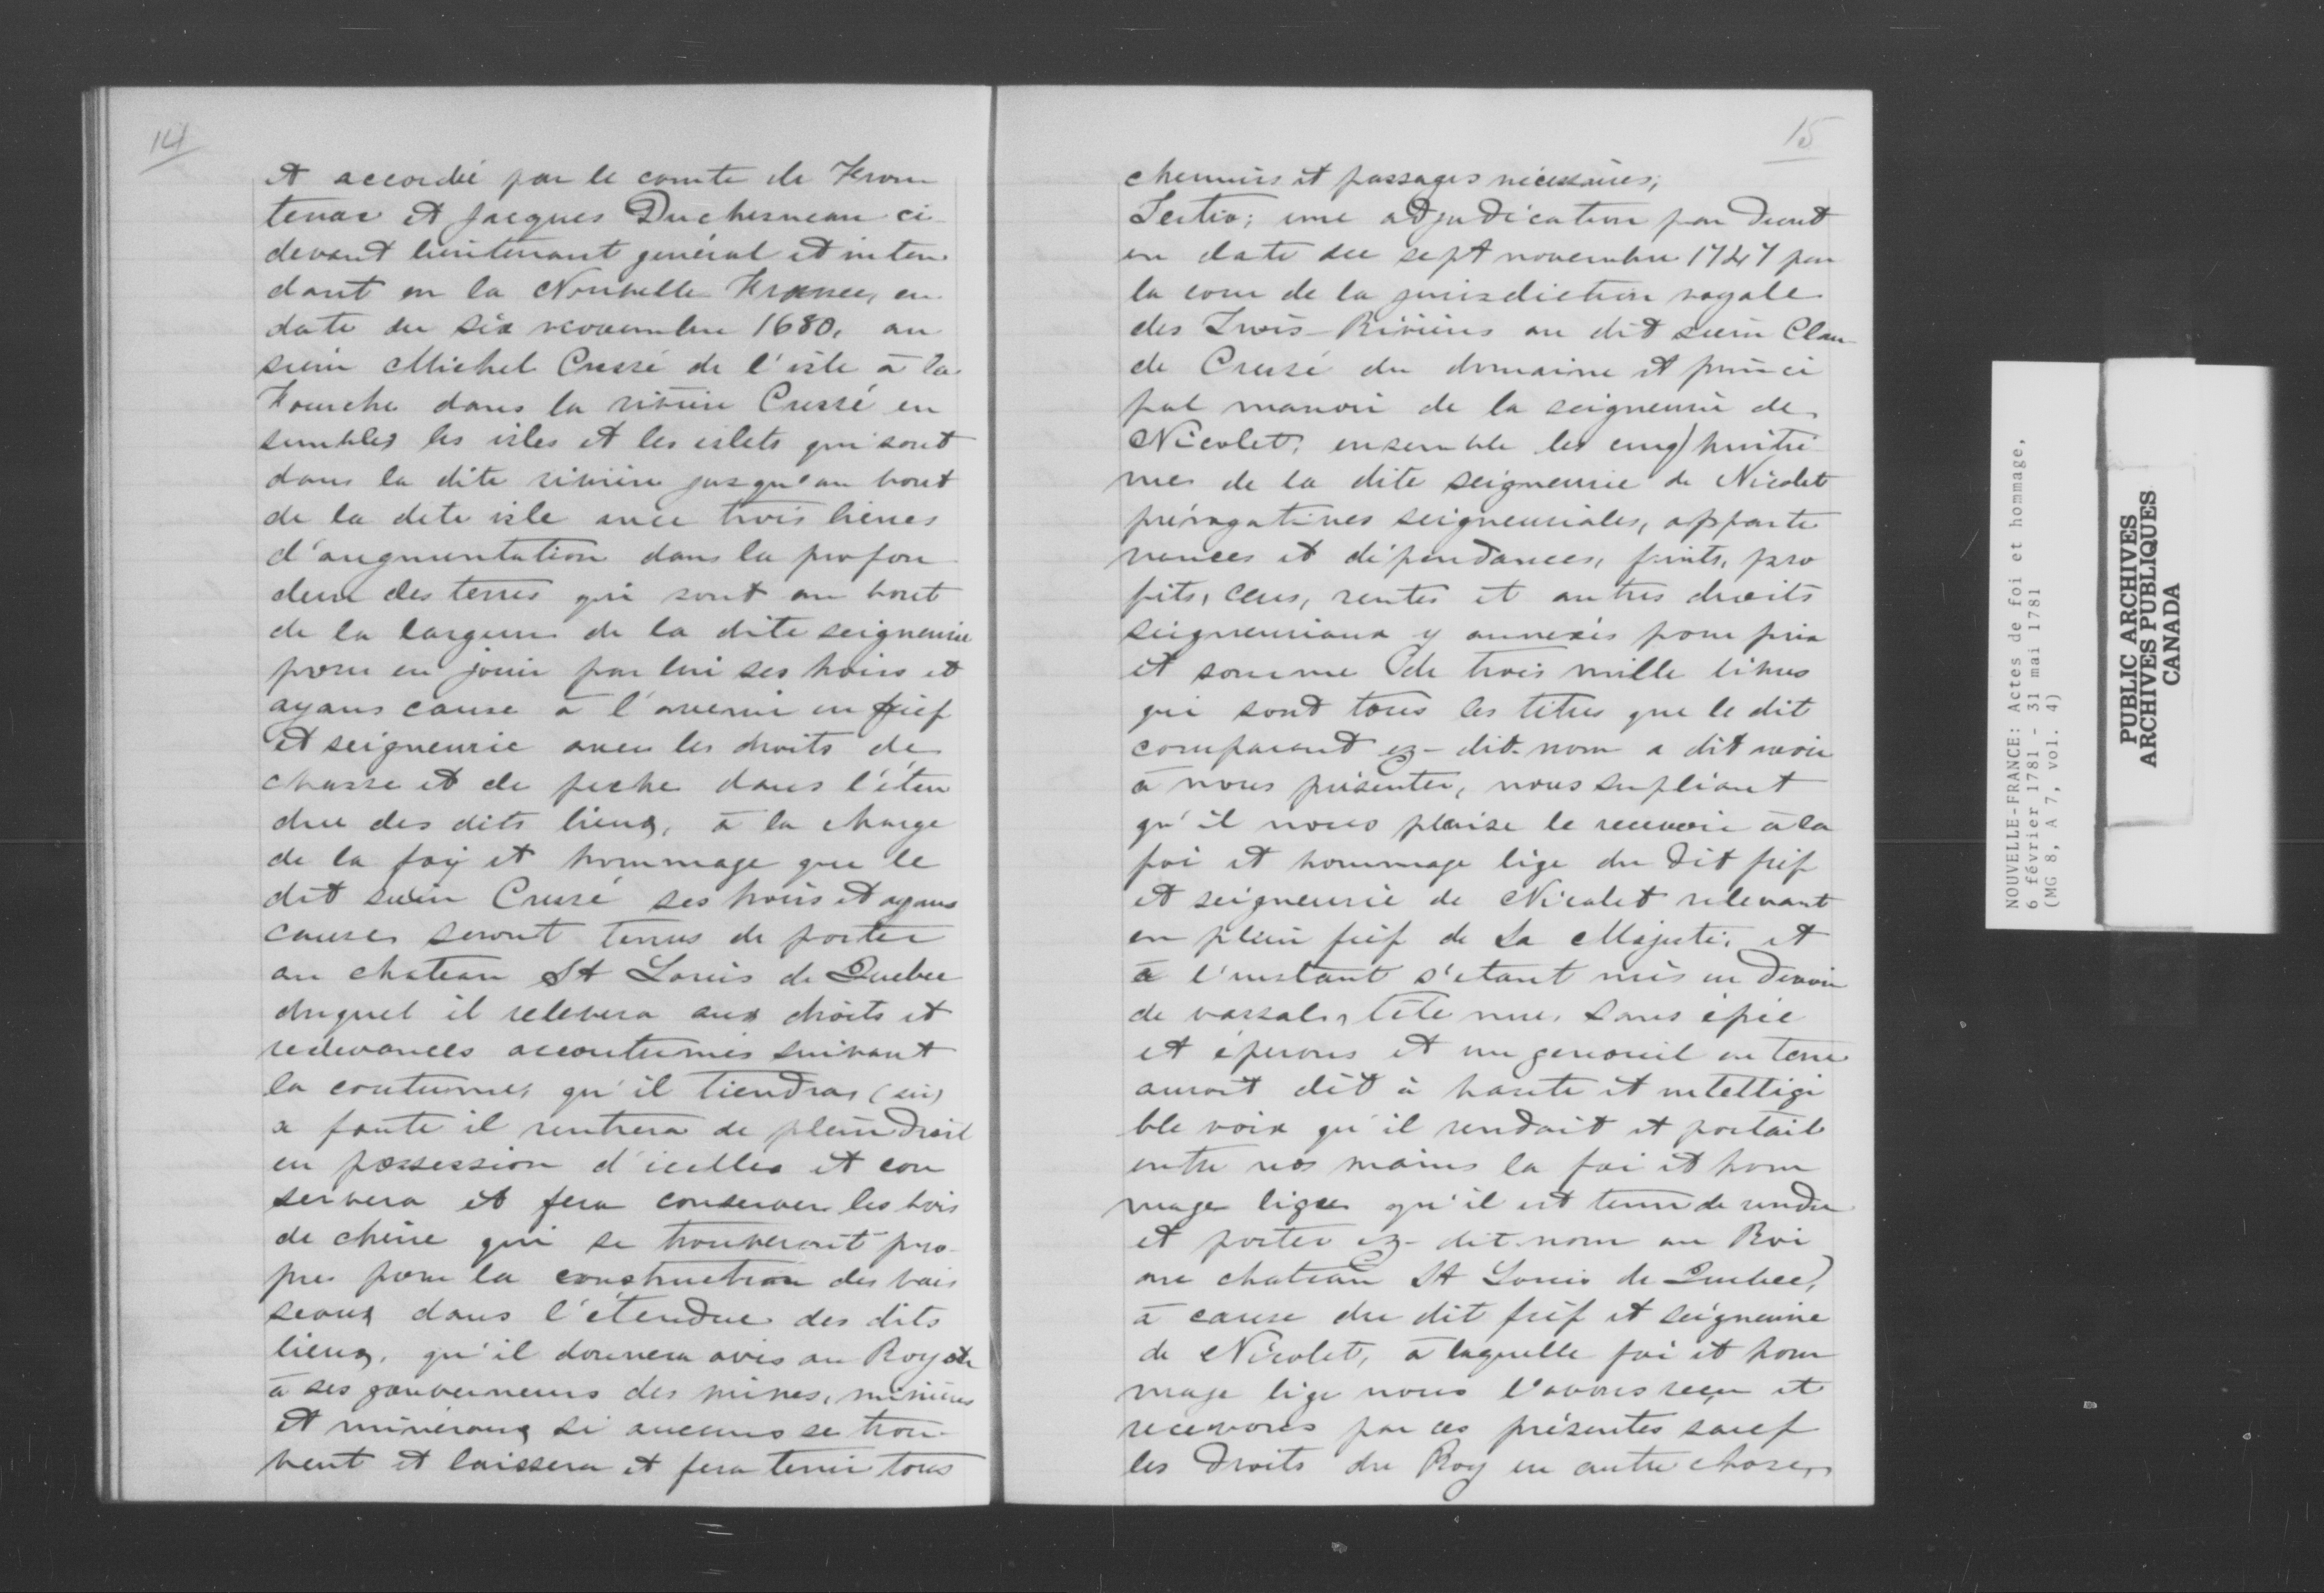 14
et accordée par le comte de Fron
tenac et Jacques Duchesneau ci
devant lieutenant général et inten
dant en la Nouvelle France, en
date du six novembre 1680, au
sieur Michel Cressé de l'isle à la
Fourche dans la rivière Cressé en
sembles les isles et les islets qui sont
dans la dite rivière jusqu'au bout
de la dete isle avec trois lieues
d'augmentation dans la profon
deur des terres qui sont au bout
de la largeur de la dite seigneurie
pour en jouir par lui ses hoirs et
ayans cause à l'avenir en fief
et seigneurie avec les droits de
chasse et de peche dans l'éten
due des dits lieux, à la charge
de la foy et hommage que le
dit sieur Cressé ses hoirs et ayans
causes seront tenus de porter
au chateau St Louis de Quebec
duquel il relevera aux droits et
redevances accoutumés suivant
la coutume, qu'il tiendras (sic)
a faute il rentrera de plein droit
en possession d'icelles et con
servera et fera conserver les bois
de chêne qui se trouveront pro-
pres pour la construction des vais
seaux dans l'étendue des dits
lieux, qu'il donnera avis au Roy ou
à ses gouverneurs des mines, minières
et mineraux si aucuns se trou-
vent et laissera et fera tenir tous
15
chemins et passages nécessaires;
Tertio; une adjudication par decret
en date du sept novembre 1747 par
la cour de la jurisdiction royale
des Trois-Rivières au dit sieur Clau-
de Cressé du domaine et princi
pal manoir de la seigneurie de
Nicolet, ensemble les cinq huitiè
mes de la dite seigneurie de Nicolet
prérogatives seigneuriales, apparte
nences et dépendances, fruits, pro
fits, cens, rentes et autres droits
seigneuriaux y annexés pour prix
et somme de trois mille livres
qui sont tous les titres que le dit
comparant ez-dit-nom a dit avoir
à nous présenter, nous supliant
qu'il nous plaise le recevoir à la
foi et hommage lige du dit fief
et seigneurie de Nicolet relevant
en plein fief de Sa Majesté, et
à l'instant s'etant mis en devoir
de vassal, tête nue, sans épée
et éperons et un genouil en terre
auroit dit à haute et intelligi
ble voix qu'il rendait et portait
entre nos mains la foi et hom
mage lige qu'il est tenu de rendre
et porter ez-dit-nom au Roi
au chateau St Louis de Quebec,
à cause du dit fief et seigneurie
de Nicolet, à laquelle foi et hom
mage lige nous l'avons reçu et
recevons par ces présentes sauf
les droits du Roy en autre chose,
NOUVELLE-FRANCE: Actes de foi et hommage,
6 février 1781 - 31 mai 1781
(MG 8, A 7, vol. 4)
PUBLIC ARCHIVES
ARCHIVES PUBLIQUES
CANADA